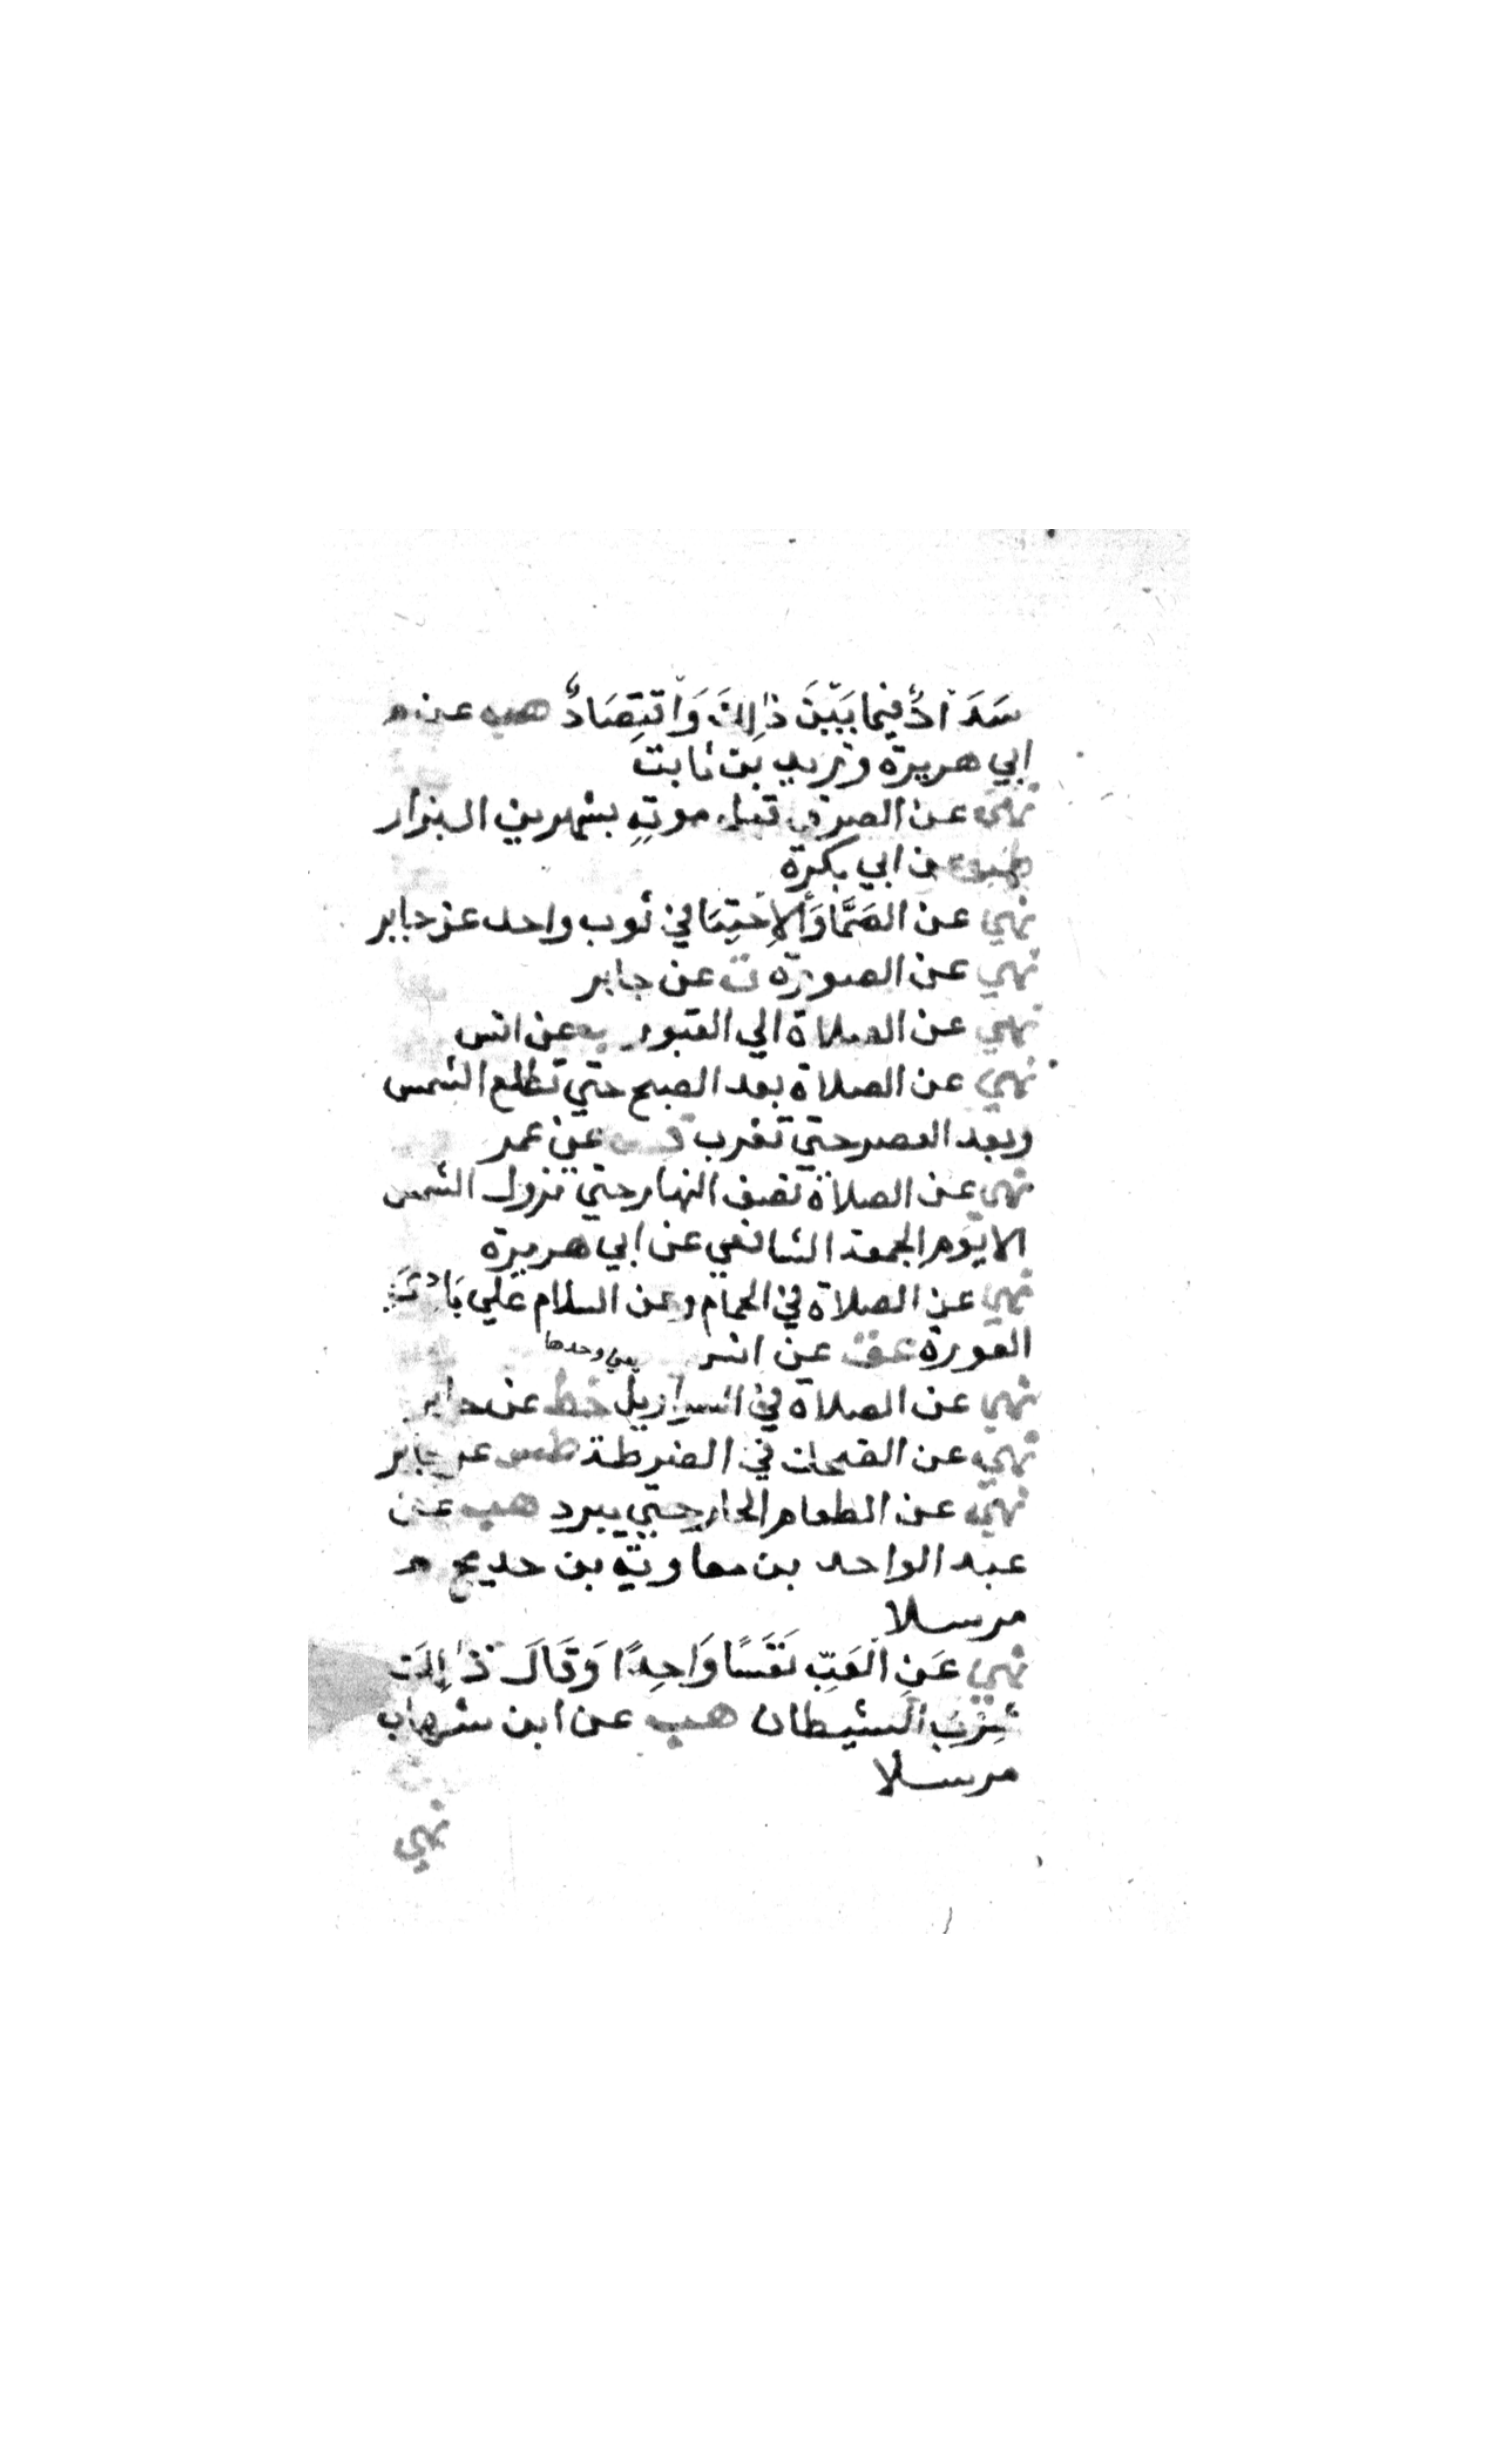 سَدَادٌ فيما بَيْنَ ذَالِكَ وَاقْتِصَادٌ هب عن
ابي هريرة وزيد بن ثابت
نهي عن الصرف قبل موتهِ بشهرين البزار
طب عن ابي بكرة
نهي عن الصَّمَّا وَالاِحْتِبَا في ثوب واحد عن جابر
نهي عن الصورة ت عن جابر
نهي عن الصلاة الي القبور عن انس
نهي عن الصلاة بعد الصبح حتي تطلع الشمس
وبعد العصر حتي تغرب عن عمر
نهي عن الصلاة نصف النهار حتي تزول الشمس
الا يوم الجمعة الشافعي عن ابي هريرة
نهي عن الصلاة في الحمام وعن السلام علي بَادِيَ
العورة عق عن انس يعني وحدها
نهي عن الصلاة في السراويل خط عن جابر
نهي عن الضحك في الضرطة طس عن جابر
نهي عن الطعام الحار حتي يبرد هب عن
عبد الواحد بن معاوية بن حديج
مرسلا
نهي عَنِ الْعَبِّ نَفَسًا وَاحِدًا وَقَالَ ذَالِكَ
شِرْبُ الشيطان هب عن ابن شهاب
مرسلا
نهي